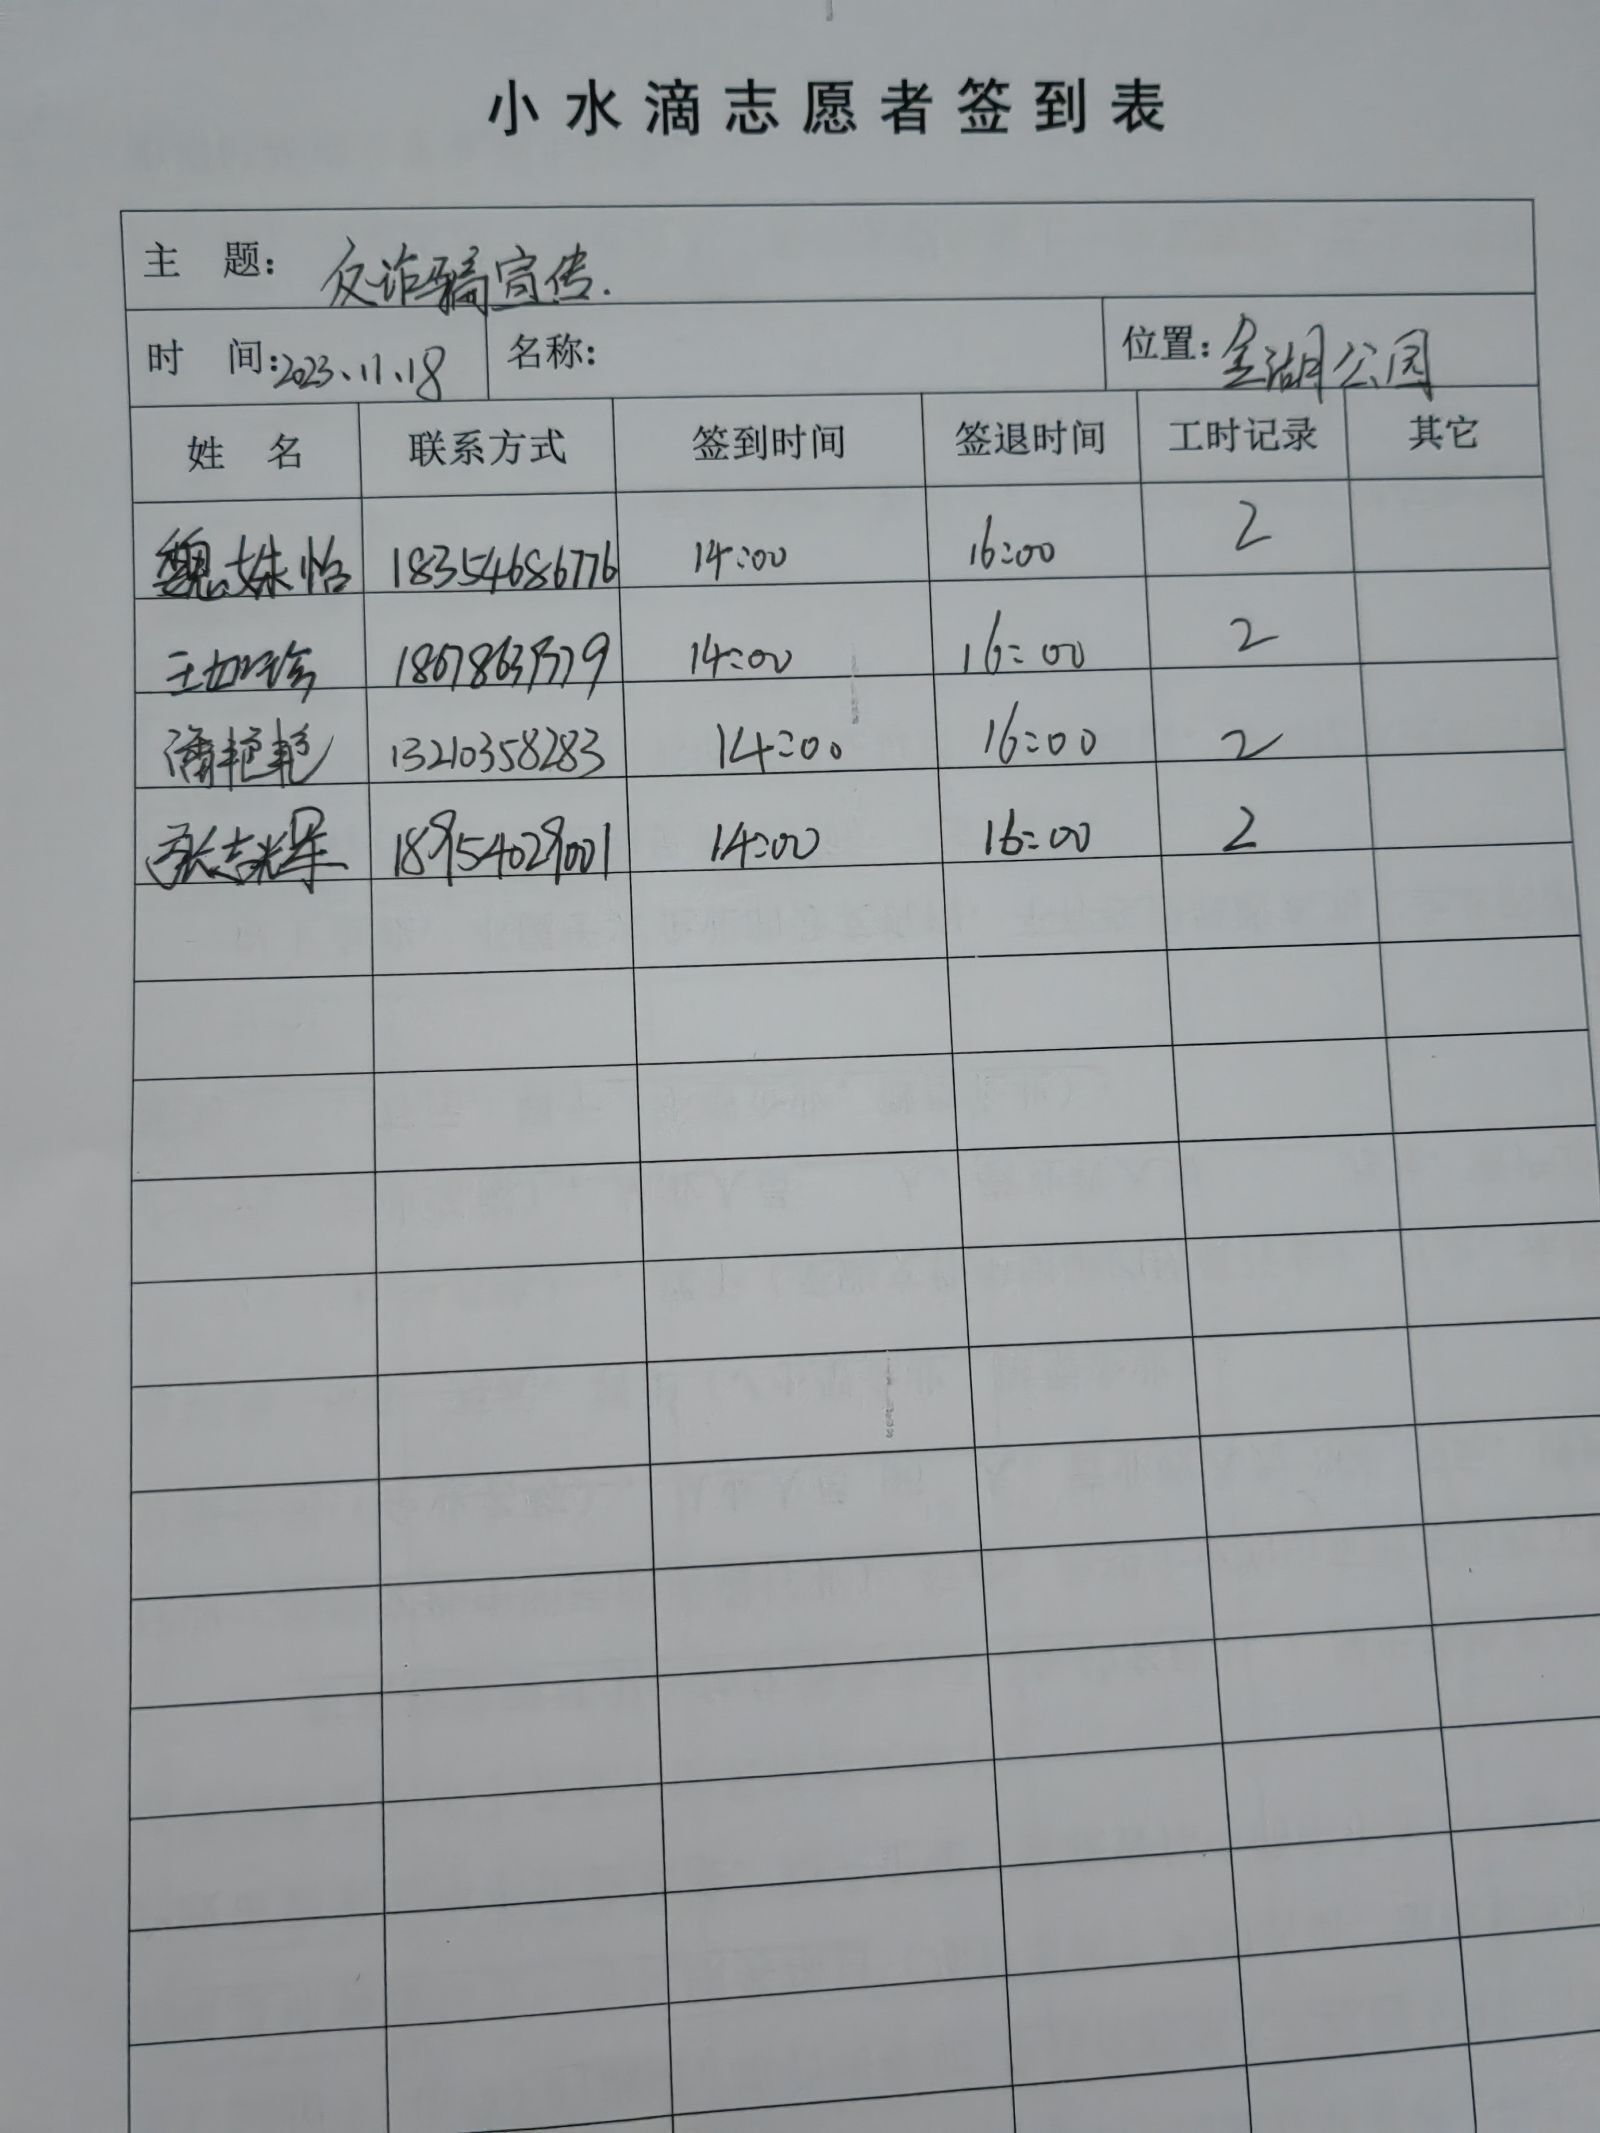 小水滴志愿者签到表
主 题： 反诈骗宣传.
时 间：2023、11、18 名称： 位置：金湖公园
姓 名 联系方式 签到时间 签退时间 工时记录 其它
魏姝怡 18354686776 14:00 16:00 2
王如珍 14:00 16:00 2
潘艳艳 13210358283 14:00 16:00 2
张志军 18954029001 14:00 16:00 2